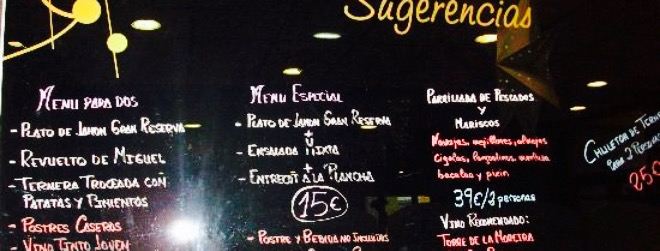 Sugerencias
MENU PARA DOS
- PLATO DE JAMON GRAN RESERVA
- REVUELTO DE MIGUEL
- TERNERA TROCEADA CON
PATATAS Y PIMIENTOS
- POSTRES CASEROS
- VINO TINTO JOVEN
MENU ESPECIAL
- PLATO DE JAMON GRAN RESERVA
+
- ENSALADA MIXTA
+
- ENTRECOT A LA PLANCHA
15€
- POSTRE Y BEBIDA NO INCLUIDAS
PARRILLADA DE PESCADOS
Y
MARISCOS
Navajas, mejillones, almejas
cigalas, langostinos, merluza
bacalao y pixin
39€/2 personas
VINO RECOMENDADO:
TORRE DE LA MOREIRA
CHULETON DE TERNERA
para 2 Personas
25€